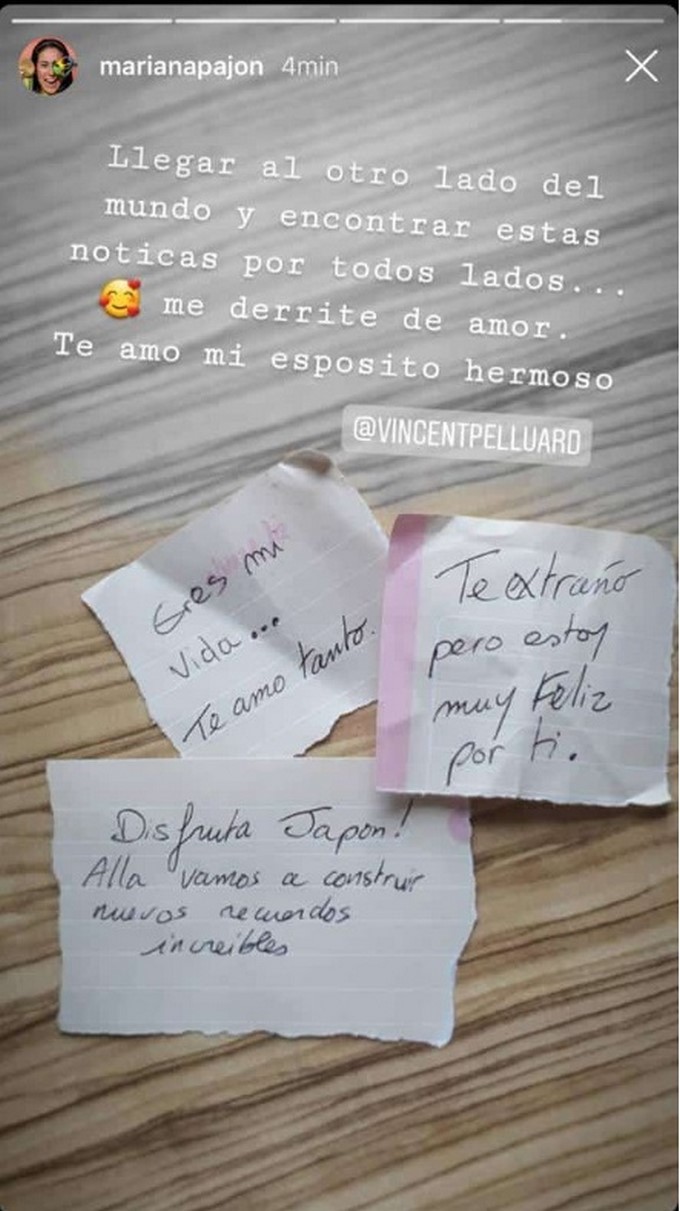 marianapajon 4min
Llegar al otro lado del
mundo y encontrar estas
noticas por todos lados...
🥰 me derrite de amor.
Te amo mi esposito hermoso
@VINCENTPELLUARD
Eres mi
vida...
Te amo tanto.
Te extraño
pero estoy
muy Feliz
por ti.
Disfruta Japon!
Alla vamos a construir
nuevos recuerdos
increibles